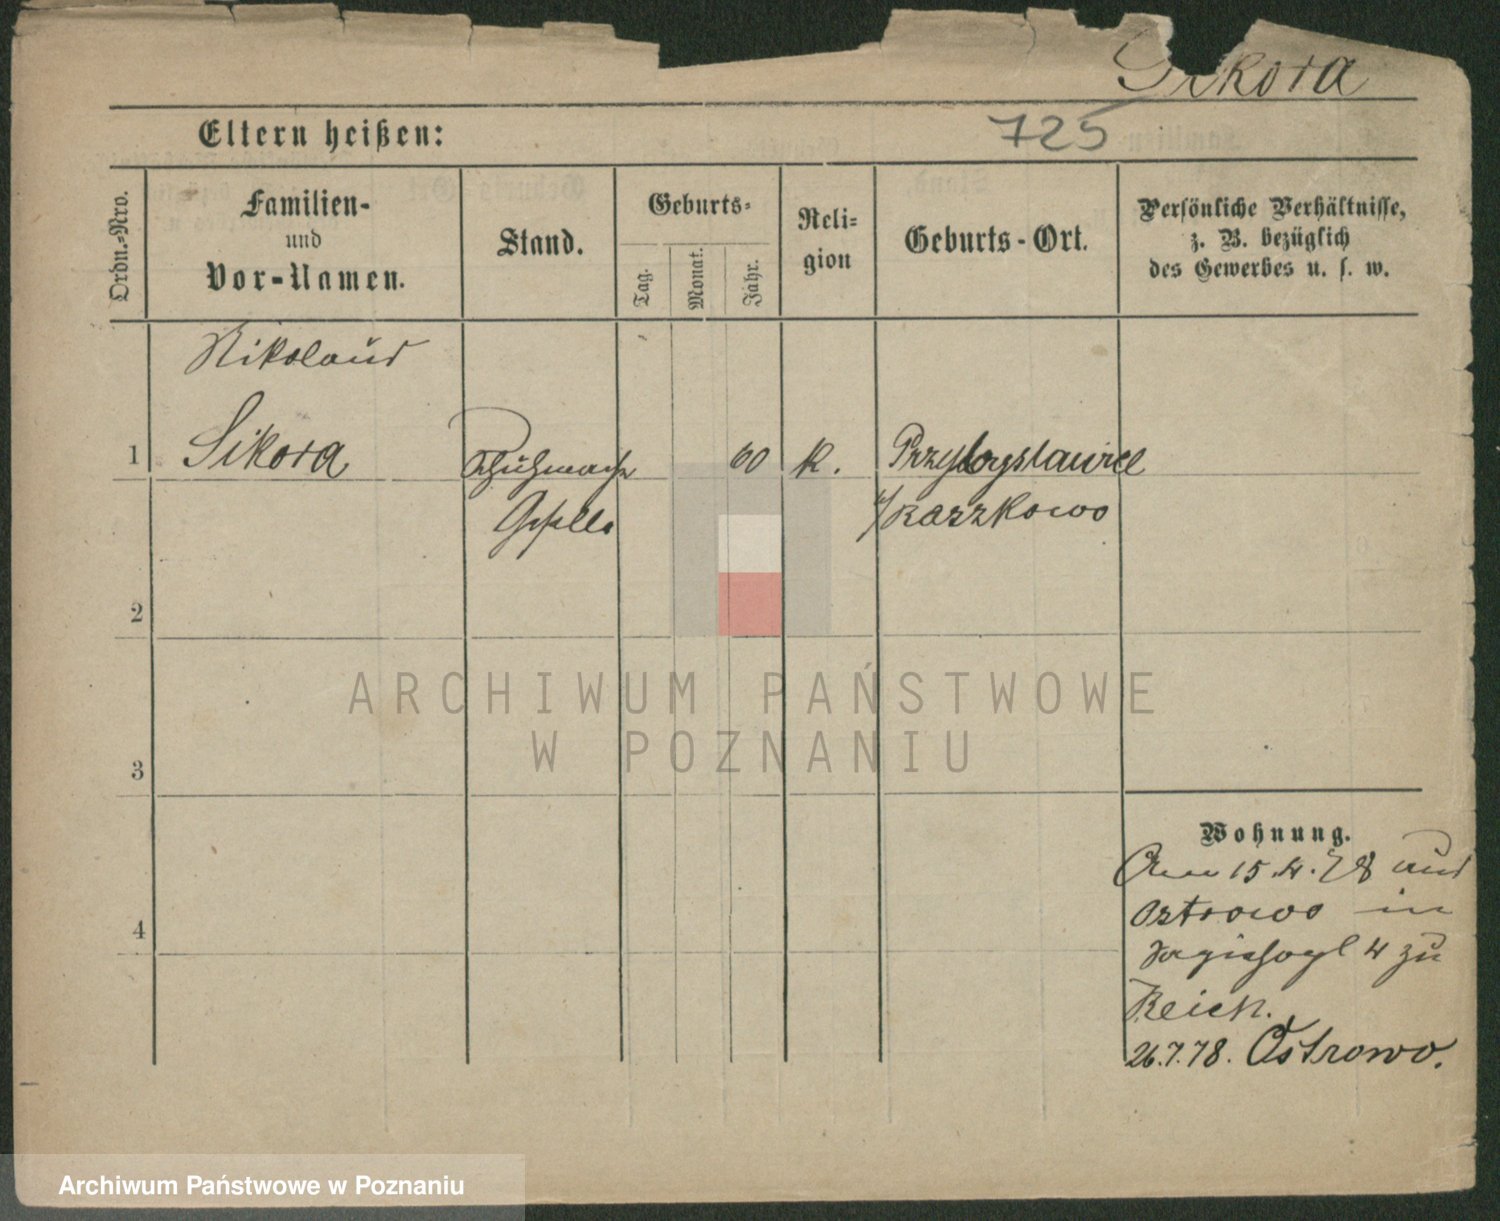 Sikora
725
Eltern heißen:
Ordn.-Nro.
Familien-
und
Vor-Namen.
Stand.
Geburts-
Tag.
Monat.
Jahr.
Reli-
gion
Geburts-Ort.
Persönliche Verhältnisse,
z. B. bezüglich
des Gewerbes u. s. w.
Nikolaus
1 Sikora Schuhmach 60 K. Przybyslawice
Geselle Raszkowo
2
3
4
Wohnung.
Am 15.4.78 aus
Ostrowo in
4 zu
Reich.
26.7.78. Ostrowo.
ARCHIWUM PAŃSTWOWE
W POZNANIU
Archiwum Państwowe w Poznaniu